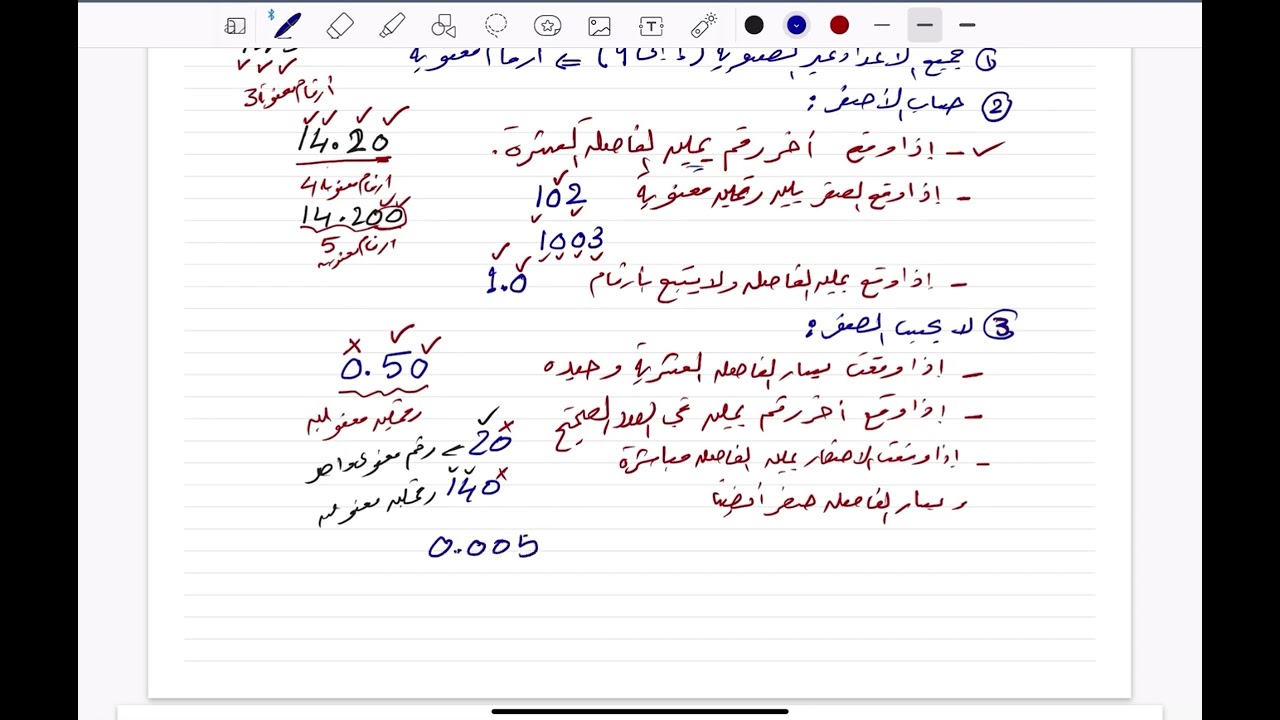 ① جميع الأعداد غير الصفرية (1 إلى 9) ⇐ أرقاما معنوية
3 أرقام معنوية
② حساب الأصفر :
- إذا وقع أخر رقم يمين الفاصلة العشرية .
14.20
4 أرقام معنوية
- إذا وقع الصفر بين رقمين معنوية
102
14.200
5 أرقام معنوية
1003
- إذا وقع يمين الفاصله ولا يتبع بأرقام
1.0
③ لا يحسب الصفر :
- إذا وقعت يسار الفاصله العشرية وحيده
0.50
رقمين معنويين
- إذا وقع أخر رقم يمين في العدد الصحيح
20 رقم معنوي واحد
- إذا وقعت الاصفار يمين الفاصله مباشرة
140 رقمين معنويين
و يسار الفاصله صفر أيضا
0.005